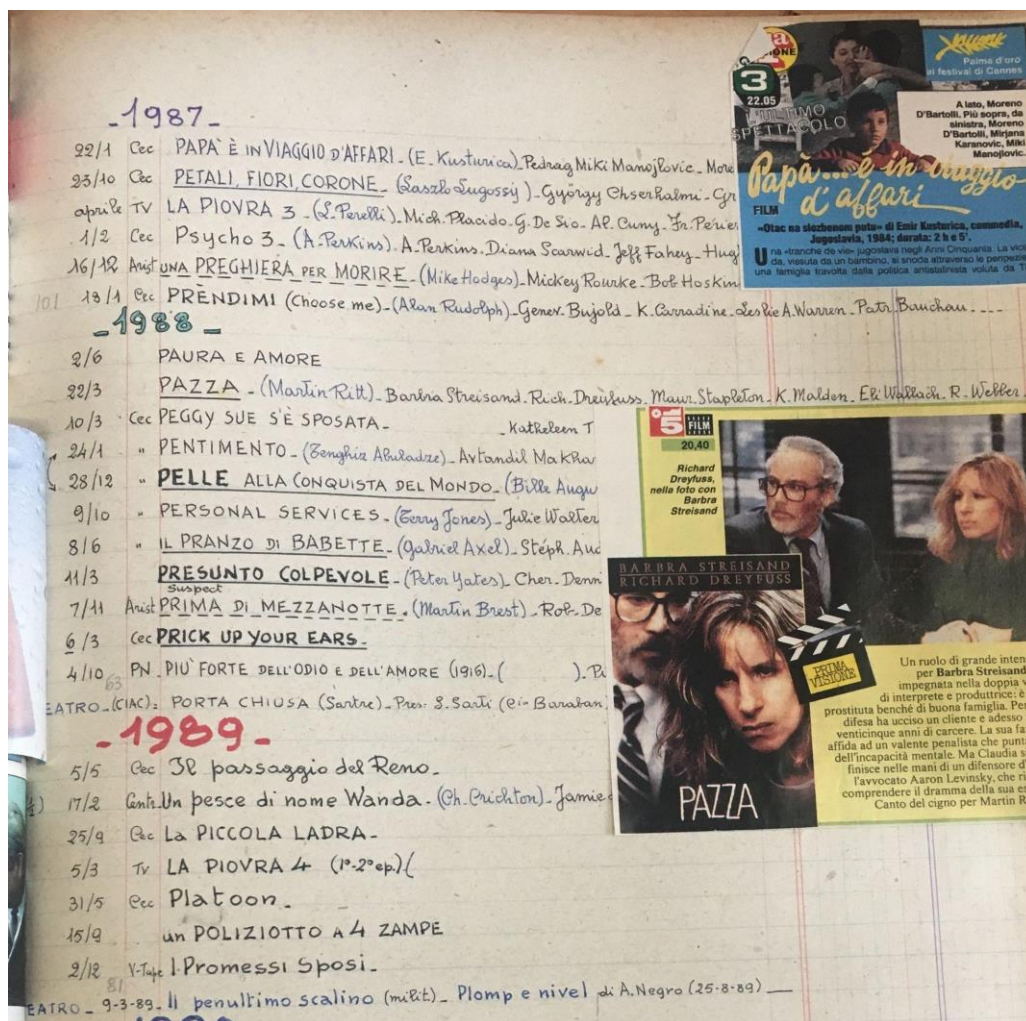 -1987-
22/1 Cec PAPA' È IN VIAGGIO D'AFFARI - (E. Kusturica) Pedrag Miki Manojlovic - More
23/10 Cec PETALI, FIORI, CORONE - (Laszlo Lugossy) - György Chserhalmi - Gr
aprile TV LA PIOVRA 3 - (L. Perelli) - Mich. Placido - G. De Sio - Al. Cuny - Fr. Périer
1/2 Cec Psycho 3 - (A. Perkins) - A. Perkins - Diana Scarwid - Jeff Fahey - Hug
16/12 Arist UNA PREGHIERA PER MORIRE - (Mike Hodges) - Mickey Rourke - Bob Hoskin
101 18/1 Cec PRÈNDIMI (Choose me) - (Alan Rudolph) - Genev. Bujold - K. Carradine - Leslie A. Warren - Patr. Bauchau - - - -
-1988-
2/6 PAURA E AMORE
22/3 PAZZA - (Martin Ritt) - Barbra Streisand - Rich. Dreyfuss - Maur. Stapleton - K. Malden - Eli Wallach - R. Webber
10/3 Cec PEGGY SUE S'È SPOSATA - - Katheleen T
24/1 " PENTIMENTO - (Tenghiz Abuladze) - Avtandil Makha
28/12 " PELLE ALLA CONQUISTA DEL MONDO - (Bille Augu
9/10 " PERSONAL SERVICES - (Terry Jones) - Julie Walter
8/6 " IL PRANZO DI BABETTE - (Gabriel Axel) - Stéph. Aud
11/3 PRESUNTO COLPEVOLE - (Peter Yates) - Cher - Denni
Suspect
7/11 Arist PRIMA DI MEZZANOTTE - (Martin Brest) - Rob. De
6/3 Cec PRICK UP YOUR EARS -
4/10 PN - PIU' FORTE DELL'ODIO E DELL'AMORE (1916) - ( ) - Pi
63
EATRO - (CIAC): PORTA CHIUSA (Sartre) - Pres. S. Sarti
-1989-
5/5 Cec Il passaggio del Reno -
17/2 Centr. Un pesce di nome Wanda - (Ch. Crichton) - Jamie
25/9 Cec La PICCOLA LADRA -
5/3 TV LA PIOVRA 4 (1°-2° ep.) (
31/5 Cec Platoon -
15/9 un POLIZIOTTO A 4 ZAMPE
2/12 V-Tape I Promessi Sposi -
81
EATRO - 9-3-89 - Il penultimo scalino (milit) - Plomp e nivel di A. Negro (25-8-89)
3
22.05
L'ULTIMO
SPETTACOLO
Palma d'oro
al festival di Cannes
A lato, Moreno
D'Bartolli. Più sopra, da
sinistra, Moreno
D'Bartolli, Mirjana
Karanovic, Miki
Manojlovic.
Papà... è in viaggio
d'affari
FILM
«Otac na sluzbenom putu» di Emir Kusturica, commedia,
Jugoslavia, 1984; durata: 2 h e 5'.
Una «tranche de vie» jugoslava negli Anni Cinquanta. La vice
da, vissuta da un bambino, si snoda attraverso le peripezie
una famiglia travolta dalla politica antistalinista voluta da T
5 FILM
20,40
Richard
Dreyfuss,
nella foto con
Barbra
Streisand
BARBRA STREISAND
RICHARD DREYFUSS
PRIMA
VISIONE
PAZZA
Un ruolo di grande inten
per Barbra Streisand
impegnata nella doppia v
di interprete e produttrice: è
prostituta benché di buona famiglia. Per
difesa ha ucciso un cliente e adesso
venticinque anni di carcere. La sua fa
affida ad un valente penalista che punt
dell'incapacità mentale. Ma Claudia s
finisce nelle mani di un difensore d'
l'avvocato Aaron Levinsky, che ri
comprendere il dramma della sua es
Canto del cigno per Martin R